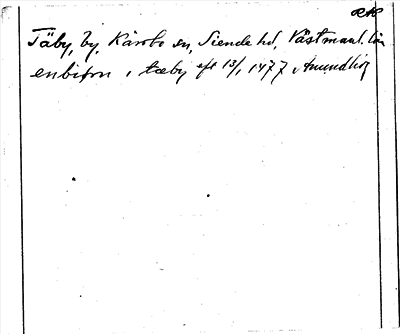 RAP
Täby, by, Kärrbo sn, Siende hd, Västmanl. län
enbiørn i tæby eft 13/1 1477 Amundhög